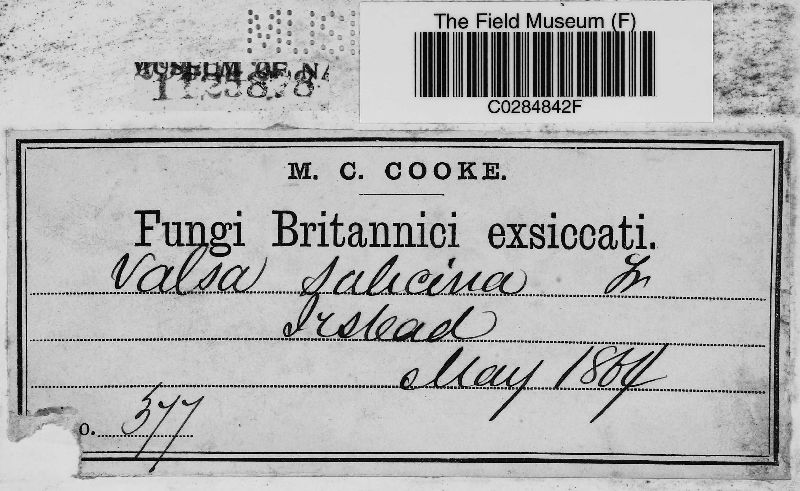 The Field Museum (F)
MUSEUM OF NA
1125878
C0284842F
M. C. COOKE.
Fungi Britannici exsiccati.
Valsa salicina Fr
Irstead
May 1864
o. 377